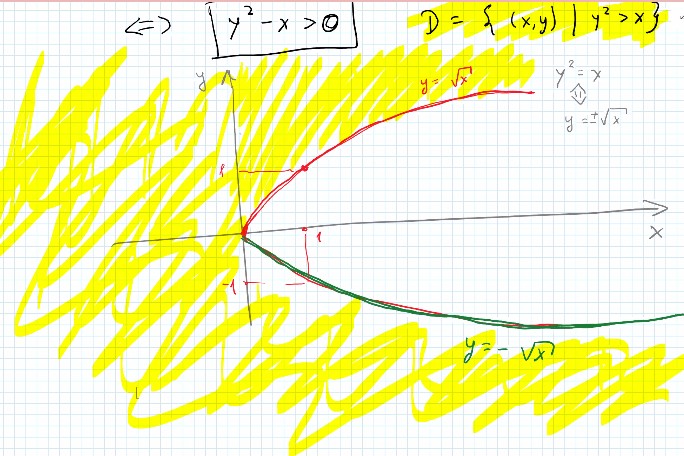 <=> y² - x > 0 D = { (x,y) | y² > x }
y y = √x y² = x
⇕
y = ±√x
1
1 x
-1
y = - √x